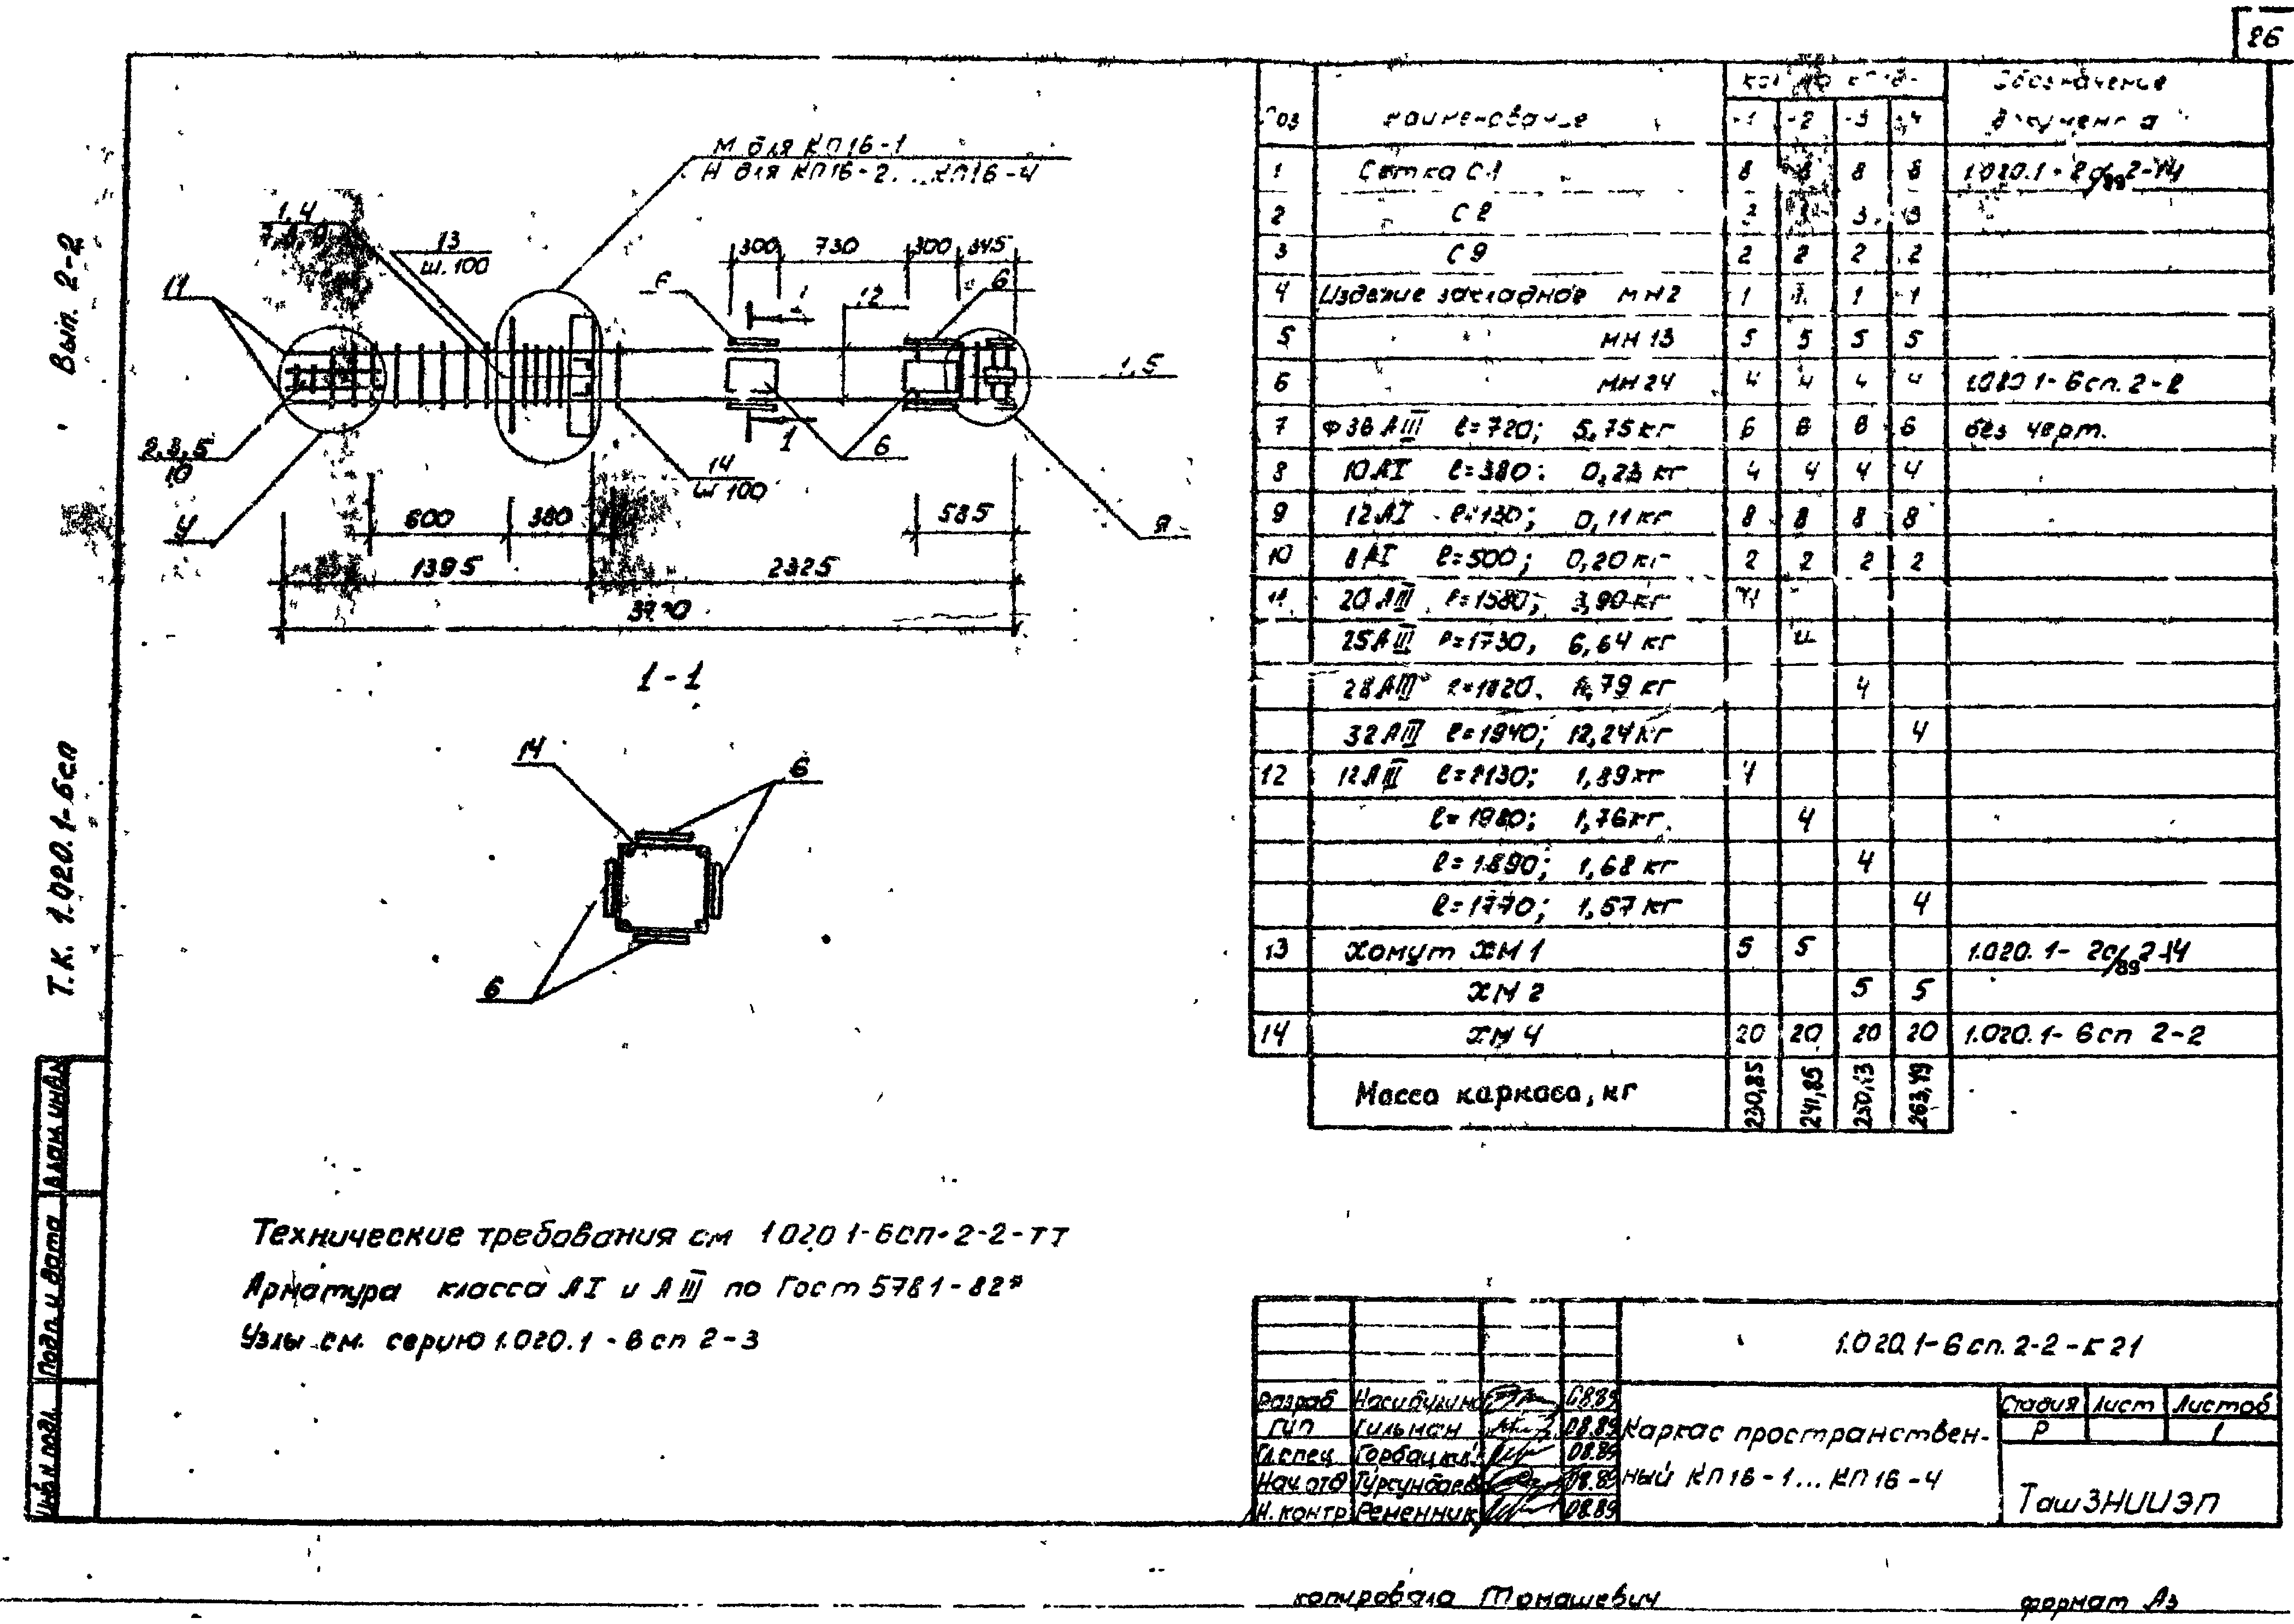 26
Вып. 2-2
Т.К. 1.020.1-6сп
М для КП16-1
Н для КП16-2...КП16-4
1,4
13
ш. 100
11
300 730 300 345
6
6
12
1
1,5
2,3,5
10
4
14
ш 100
1
6
600 380
585
1395 2325
1-1
14
6
6
Поз наименование -1 -2 -3 -4 Обозначение документа
1 Сетка С1 8 8 8 8
2 С2 3 3
3 С9 2 2 2 2
4 Изделие закладное МН2 1 1 1 1
5 МН13 5 5 5 5
6 МН24 4 4 4 4 1.020.1-6сп. 2-2
7 Ф36АIII ℓ=720; 5,75кг 6 6 6 6 без черт.
8 10АI ℓ=380; 0,23 кг 4 4 4 4
9 12АI ℓ=130; 0,11кг 8 8 8 8
10 8АI ℓ=500; 0,20кг 2 2 2 2
11 20АIII ℓ=1580; 3,90кг 4
25АIII ℓ=1730, 6,64 кг 4
28АIII 79 кг 4
32АIII ℓ=1940; 12,24кг 4
12 12АIII ℓ=2130; 1,89кг 4
ℓ=1980; 1,76кг. 4
ℓ=1890; 1,68кг 4
ℓ=1770; 1,57кг 4
13 Хомут ХМ1 5 5 1.020.1-2с/89 2-14
ХМ2 5 5
14 ХМ4 20 20 20 20 1.020.1-6сп 2-2
Масса каркаса, кг 230,85 241,85 250,13 263,49
Технические требования см 1.020 1-6сп.2-2-ТТ
Арматура класса АI и АIII по Гост 5781-82*
Узлы см. серию 1.020.1-6сп 2-3
1.020.1-6сп. 2-2-К21
Разраб 08.89
ГИП Гильман 08.89
Гл.спец Горбацкий 08.89
Нач.отд Турсунбаев 08.89
Н.контр Ременник 08.89
Каркас пространствен-
ный КП16-1...КП16-4
Стадия Лист Листов
Р 1
ТашЗНИИЭП
Взам инв.
Подп. и дата
Инв.N подл.
копировала Томашевич
формат А3